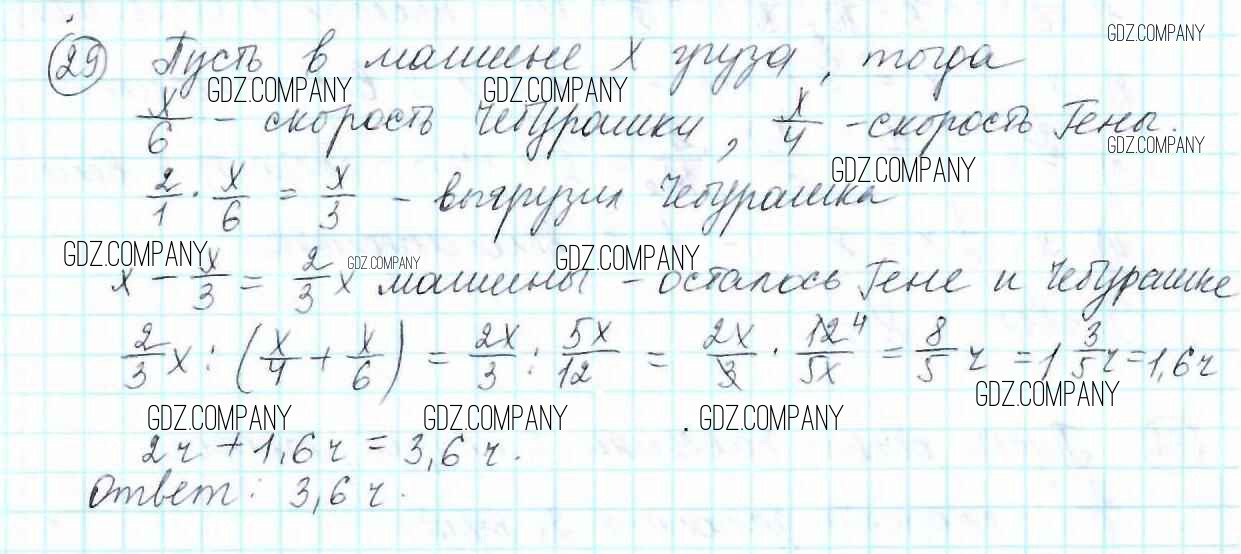 GDZ.COMPANY
29 Пусть в машине x груза, тогда
GDZ.COMPANY GDZ.COMPANY
x/6 - скорость Чебурашки, x/4 - скорость Гены.
GDZ.COMPANY
GDZ.COMPANY
2/1 · x/6 = x/3 - выгрузил Чебурашка
GDZ.COMPANY GDZ.COMPANY GDZ.COMPANY
x - x/3 = 2/3 x машины - осталось Гене и Чебурашке
2/3 x : (x/4 + x/6) = 2x/3 : 5x/12 = 2x/3 · 12 4/5x = 8/5 ч = 1 3/5 ч = 1,6 ч
GDZ.COMPANY
GDZ.COMPANY GDZ.COMPANY GDZ.COMPANY
2ч + 1,6 ч = 3,6 ч.
Ответ: 3,6 ч.